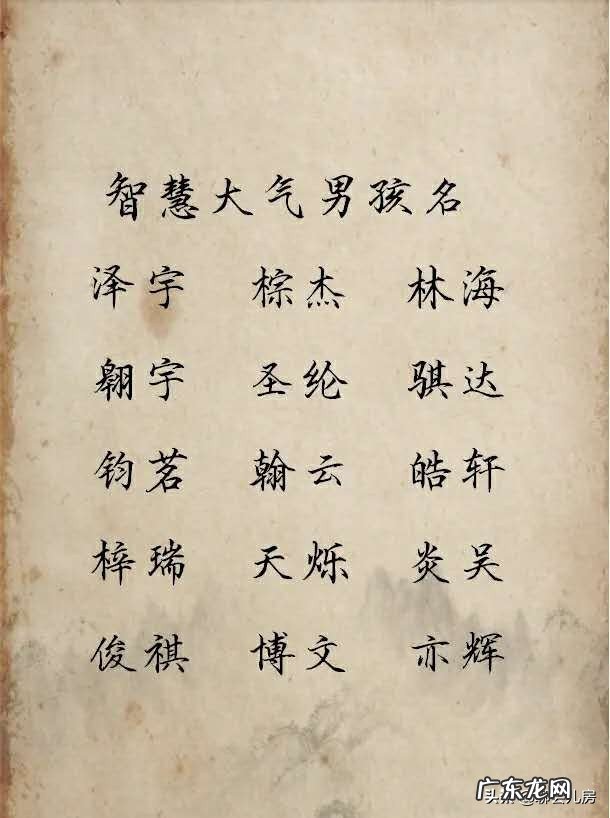 智慧大气男孩名
泽宇 棕杰 林海
翱宇 圣纶 骐达
钧茗 翰云 皓轩
梓瑞 天烁 炎吴
俊祺 博文 亦辉
广东龙网
头条
儿房